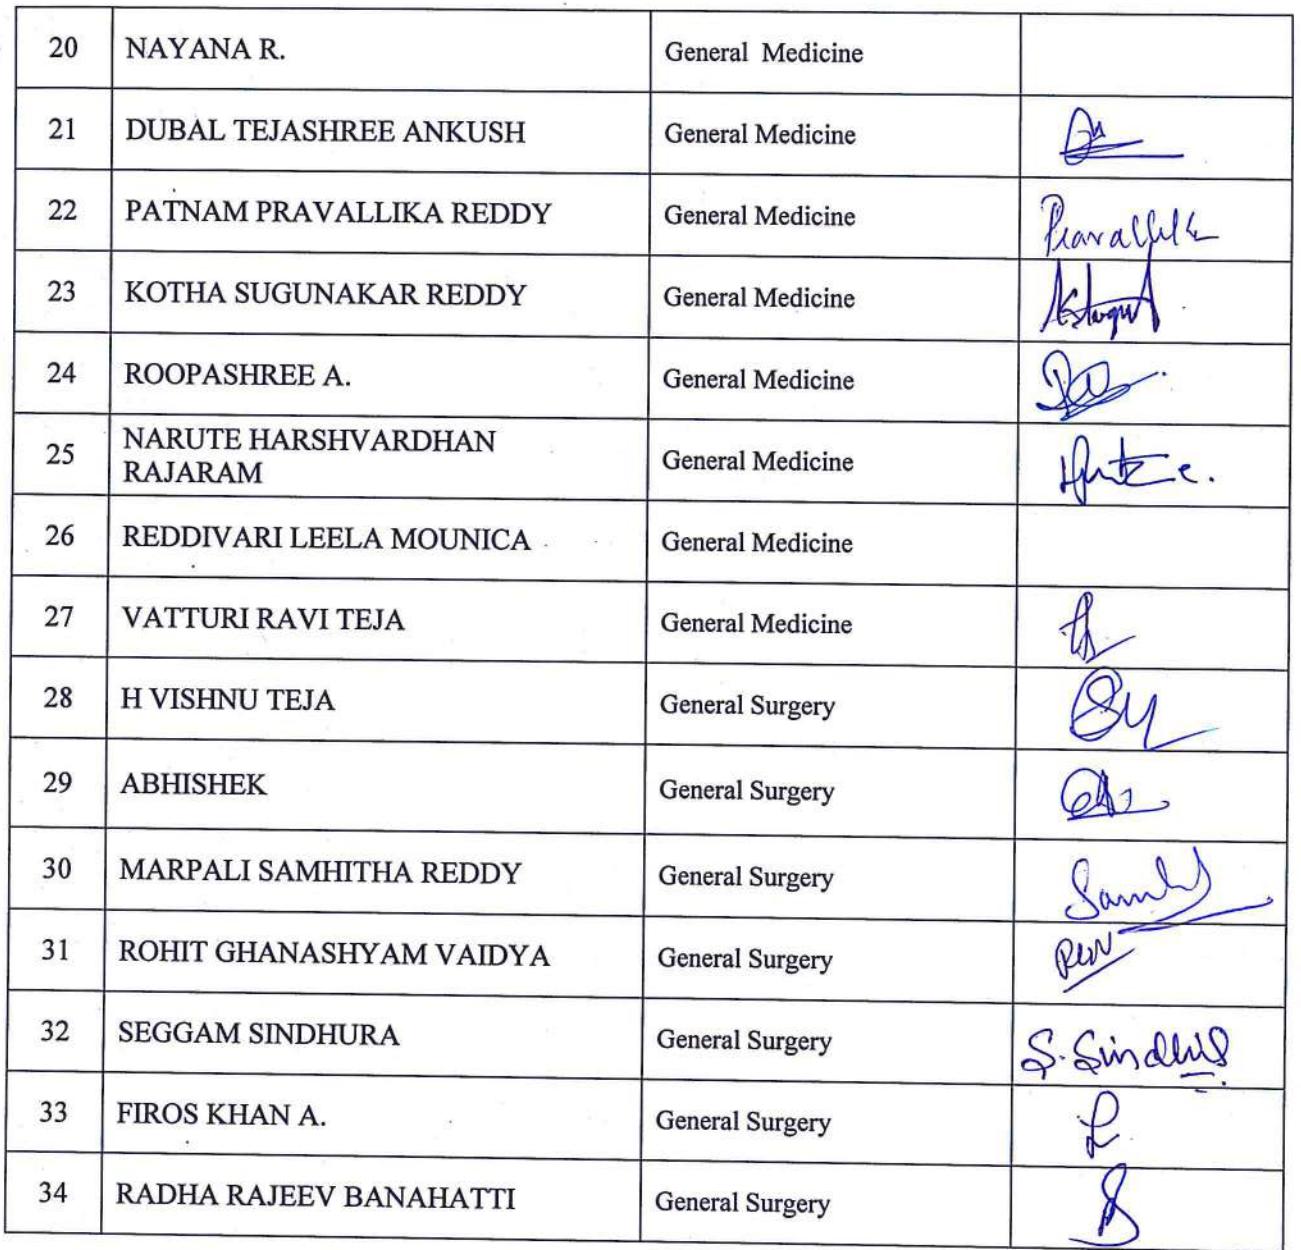 20 NAYANA R. General Medicine
21 DUBAL TEJASHREE ANKUSH General Medicine
22 PATNAM PRAVALLIKA REDDY General Medicine Pravallika
23 KOTHA SUGUNAKAR REDDY General Medicine
24 ROOPASHREE A. General Medicine
25 NARUTE HARSHVARDHAN
RAJARAM General Medicine
26 REDDIVARI LEELA MOUNICA General Medicine
27 VATTURI RAVI TEJA General Medicine
28 H VISHNU TEJA General Surgery
29 ABHISHEK General Surgery
30 MARPALI SAMHITHA REDDY General Surgery
31 ROHIT GHANASHYAM VAIDYA General Surgery
32 SEGGAM SINDHURA General Surgery
33 FIROS KHAN A. General Surgery
34 RADHA RAJEEV BANAHATTI General Surgery